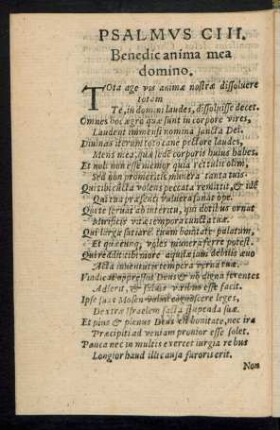 PSALMVS CIII.
Benedic anima mea
domino.
TOta age vis animæ nostræ dissoluere
totam
Te, in domini laudes, dissoluisse decet.
Omnes hoc ægro quæ sunt in corpore vires,
Laudent immensi nomina sancta Dei.
Diuinas iterum toto cane pectore laudes,
Mens mea, quæ sedē corporis huius habes.
Et noli non esse memor quia rettulit olim,
Sed non promeritis munera tanta tuis.
Qui tibi cūcta volens peccata remittit, & idē
Qui tua præsenti vulnera sanat ope.
Qui te seruat ab interitu, qui dotibus ornat
Muneris vitæ tempora cuncta tuæ.
Qui largæ satiare tuam bonitate palatum,
Et quæcunq, voles munera ferre potest.
Qui reddit tibi more aquilæ iam debitis æuo
Acta iuuentutis tempora verna tuæ.
Vindicat oppressos Deus & indigna ferentes
Asserit, & solidæ viribus esse facit.
Ipse suas Mosen voluit cognoscere leges,
Dextræ Israelem facta stupenda suæ.
Et pius & plenus Deus est bonitate, nec ira
Præcipiti ad veniam pronior esse solet.
Pauca nec in multis exercet iurgia rebus
Longior haud illi causa furoris erit.
Non